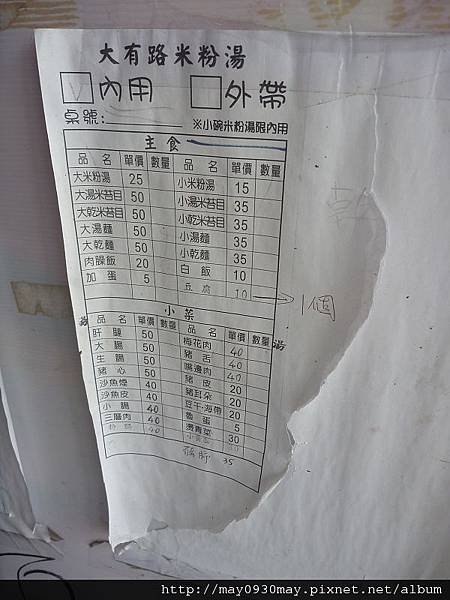 大有路米粉湯
內用 外帶
桌號:
※小碗米粉湯限內用
主食
品名 單價 數量 品名 單價 數量
大米粉湯 25 小米粉湯 15
大湯米苔目 50 小湯米苔目 35
大乾米苔目 50 小乾米苔目 35
大湯麵 50 小湯麵 35
大乾麵 50 小乾麵 35
肉燥飯 20 白飯 10
加蛋 5 豆腐 10 → 1個
小菜
品名 單價 數量 品名 單價 數量
肝腱 50 梅花肉 40
大腸 50 豬舌 40
生腸 50 嘴邊肉 40
豬心 50 豬皮 20
沙魚煙 40 豬耳朵 20
沙魚皮 40 豆干.海帶 20
小腸 40 魯蛋 5
三層肉 40 燙青菜 30
40
35
http://may0930may.pixnet.net/album